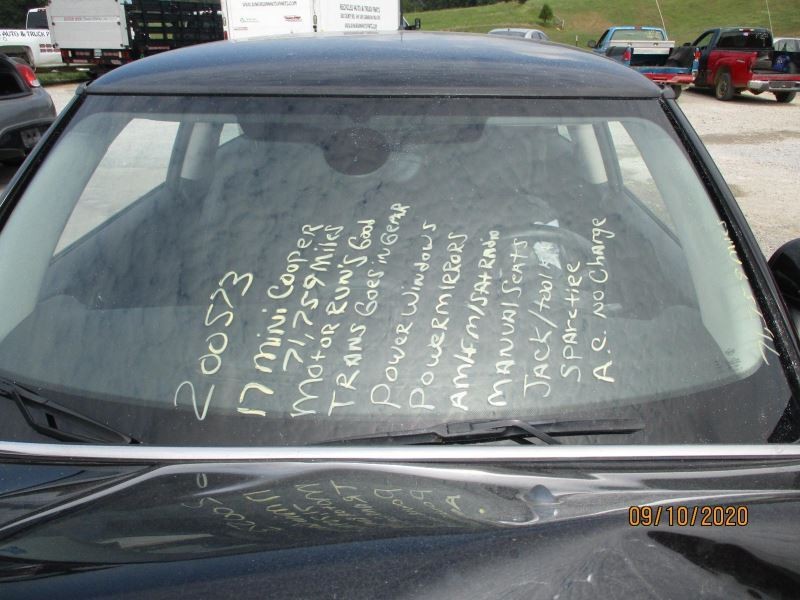 AUTO & TRUCK P
RECYCLED AUTO & TRUCK PARTS
200573
17 Mini Cooper
71,759 Miles
Motor RUN'S Good
TRANS Goes in Gear
Power Windows
Power MIRRORS
AM/FM/SAT RADIO
MANUAL SEATS
JACK/TOOL
SPARE TIRE
A.C. NO Charge
09/10/2020